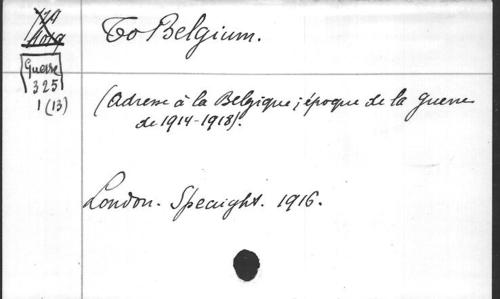 To Belgium.
Guerre
325
1(13)
(Adresse à la Belgique; époque de la guerre
de 1914-1918).
London. Speaight. 1916.